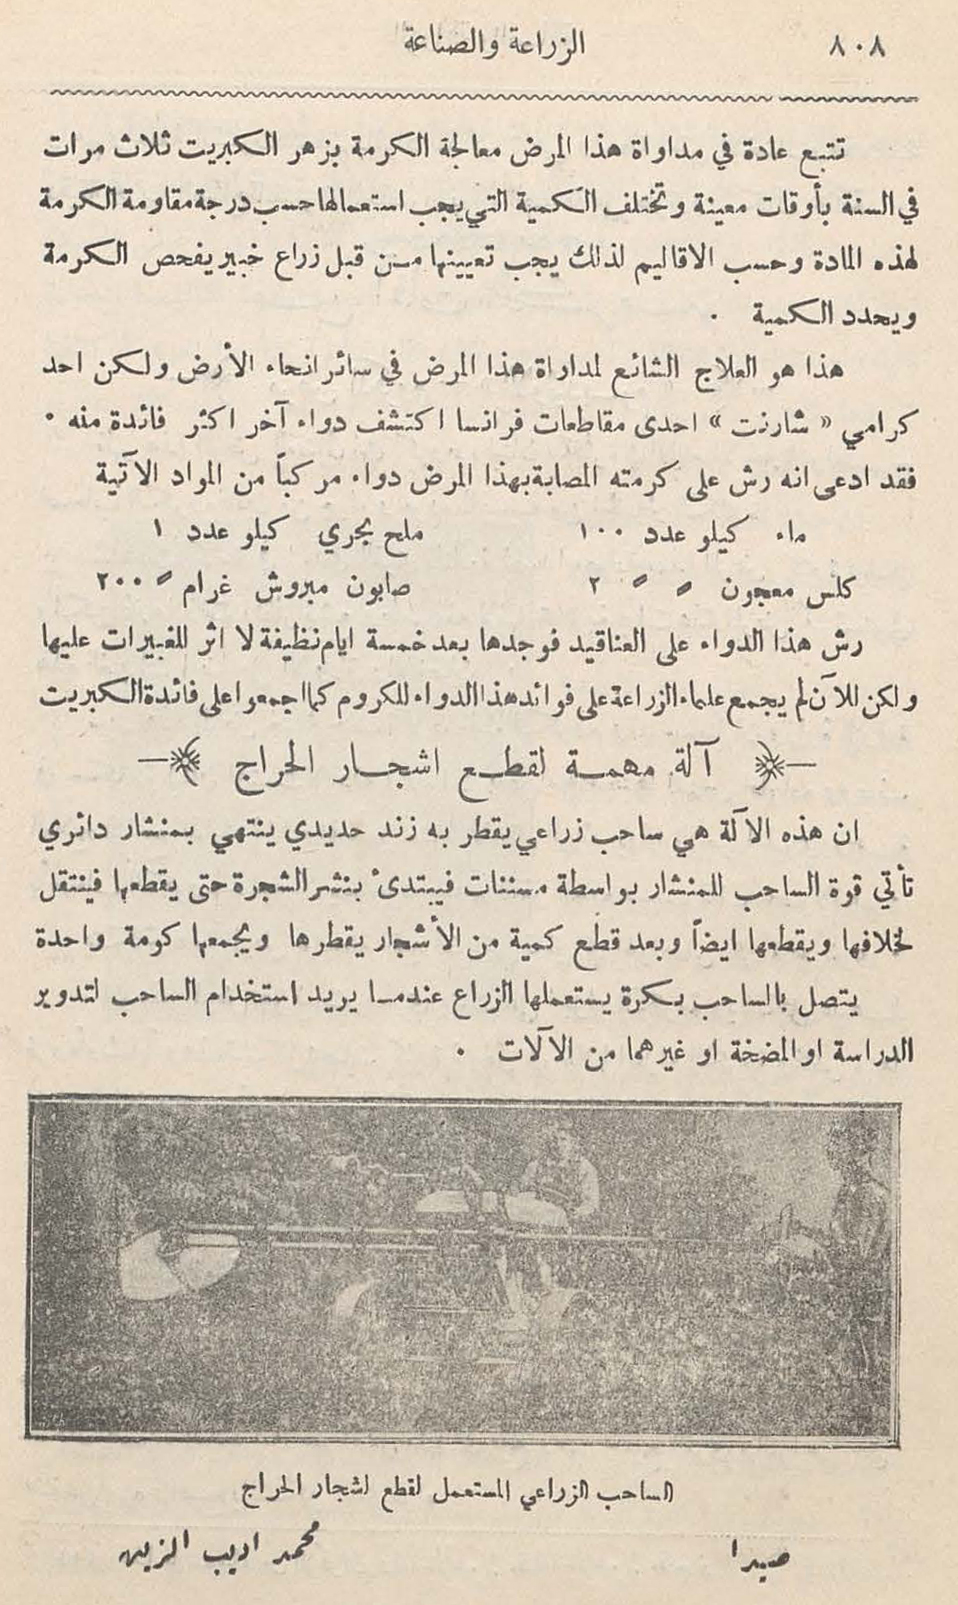 ٨٠٨ الزراعة والصناعة
تتبع عادة في مداواة هذا المرض معالجة الكرمة بزهر الكبريت ثلاث مرات
في السنة بأوقات معينة وتختلف الكمية التي يجب استعمالها حسب درجة مقاومة الكرمة
لهذه المادة وحسب الاقاليم لذلك يجب تعيينها من قبل زراع خبير يفحص الكرمة
ويحدد الكمية .
هذا هو العلاج الشائع لمداواة هذا المرض في سائر انحاء الأرض ولكن احد
كرامي « شارنت » احدى مقاطعات فرانسا اكتشف دواء آخر اكثر فائدة منه .
فقد ادعى انه رش على كرمته المصابة بهذا المرض دواء مركباً من المواد الآتية
ماء كيلو عدد ١٠٠ ملح بحري كيلو عدد ١
كلس معجون 〃 〃 ٢ صابون مبروش غرام 〃 ٢٠٠
رش هذا الدواء على العناقيد فوجدها بعد خمسة ايام نظيفة لا اثر للغبيرات عليها
ولكن للآن لم يجمع علماء الزراعة على فوائد هذا الدواء للكروم كما اجمعوا على فائدة الكبريت
آلة مهمة لقطع اشجار الحراج
ان هذه الآلة هي ساحب زراعي يقطر به زند حديدي ينتهي بمنشار دائري
تأتي قوة الساحب للمنشار بواسطة مسننات فيبتدئ بنشر الشجرة حتى يقطعها فينتقل
لخلافها ويقطعها ايضاً وبعد قطع كمية من الأشجار يقطرها ويجمعها كومة واحدة
يتصل بالساحب بكرة يستعملها الزراع عندما يريد استخدام الساحب لتدوير
الدراسة او المضخة او غيرهما من الآلات .
الساحب الزراعي المستعمل لقطع اشجار الحراج
صيدا محمد اديب الزين